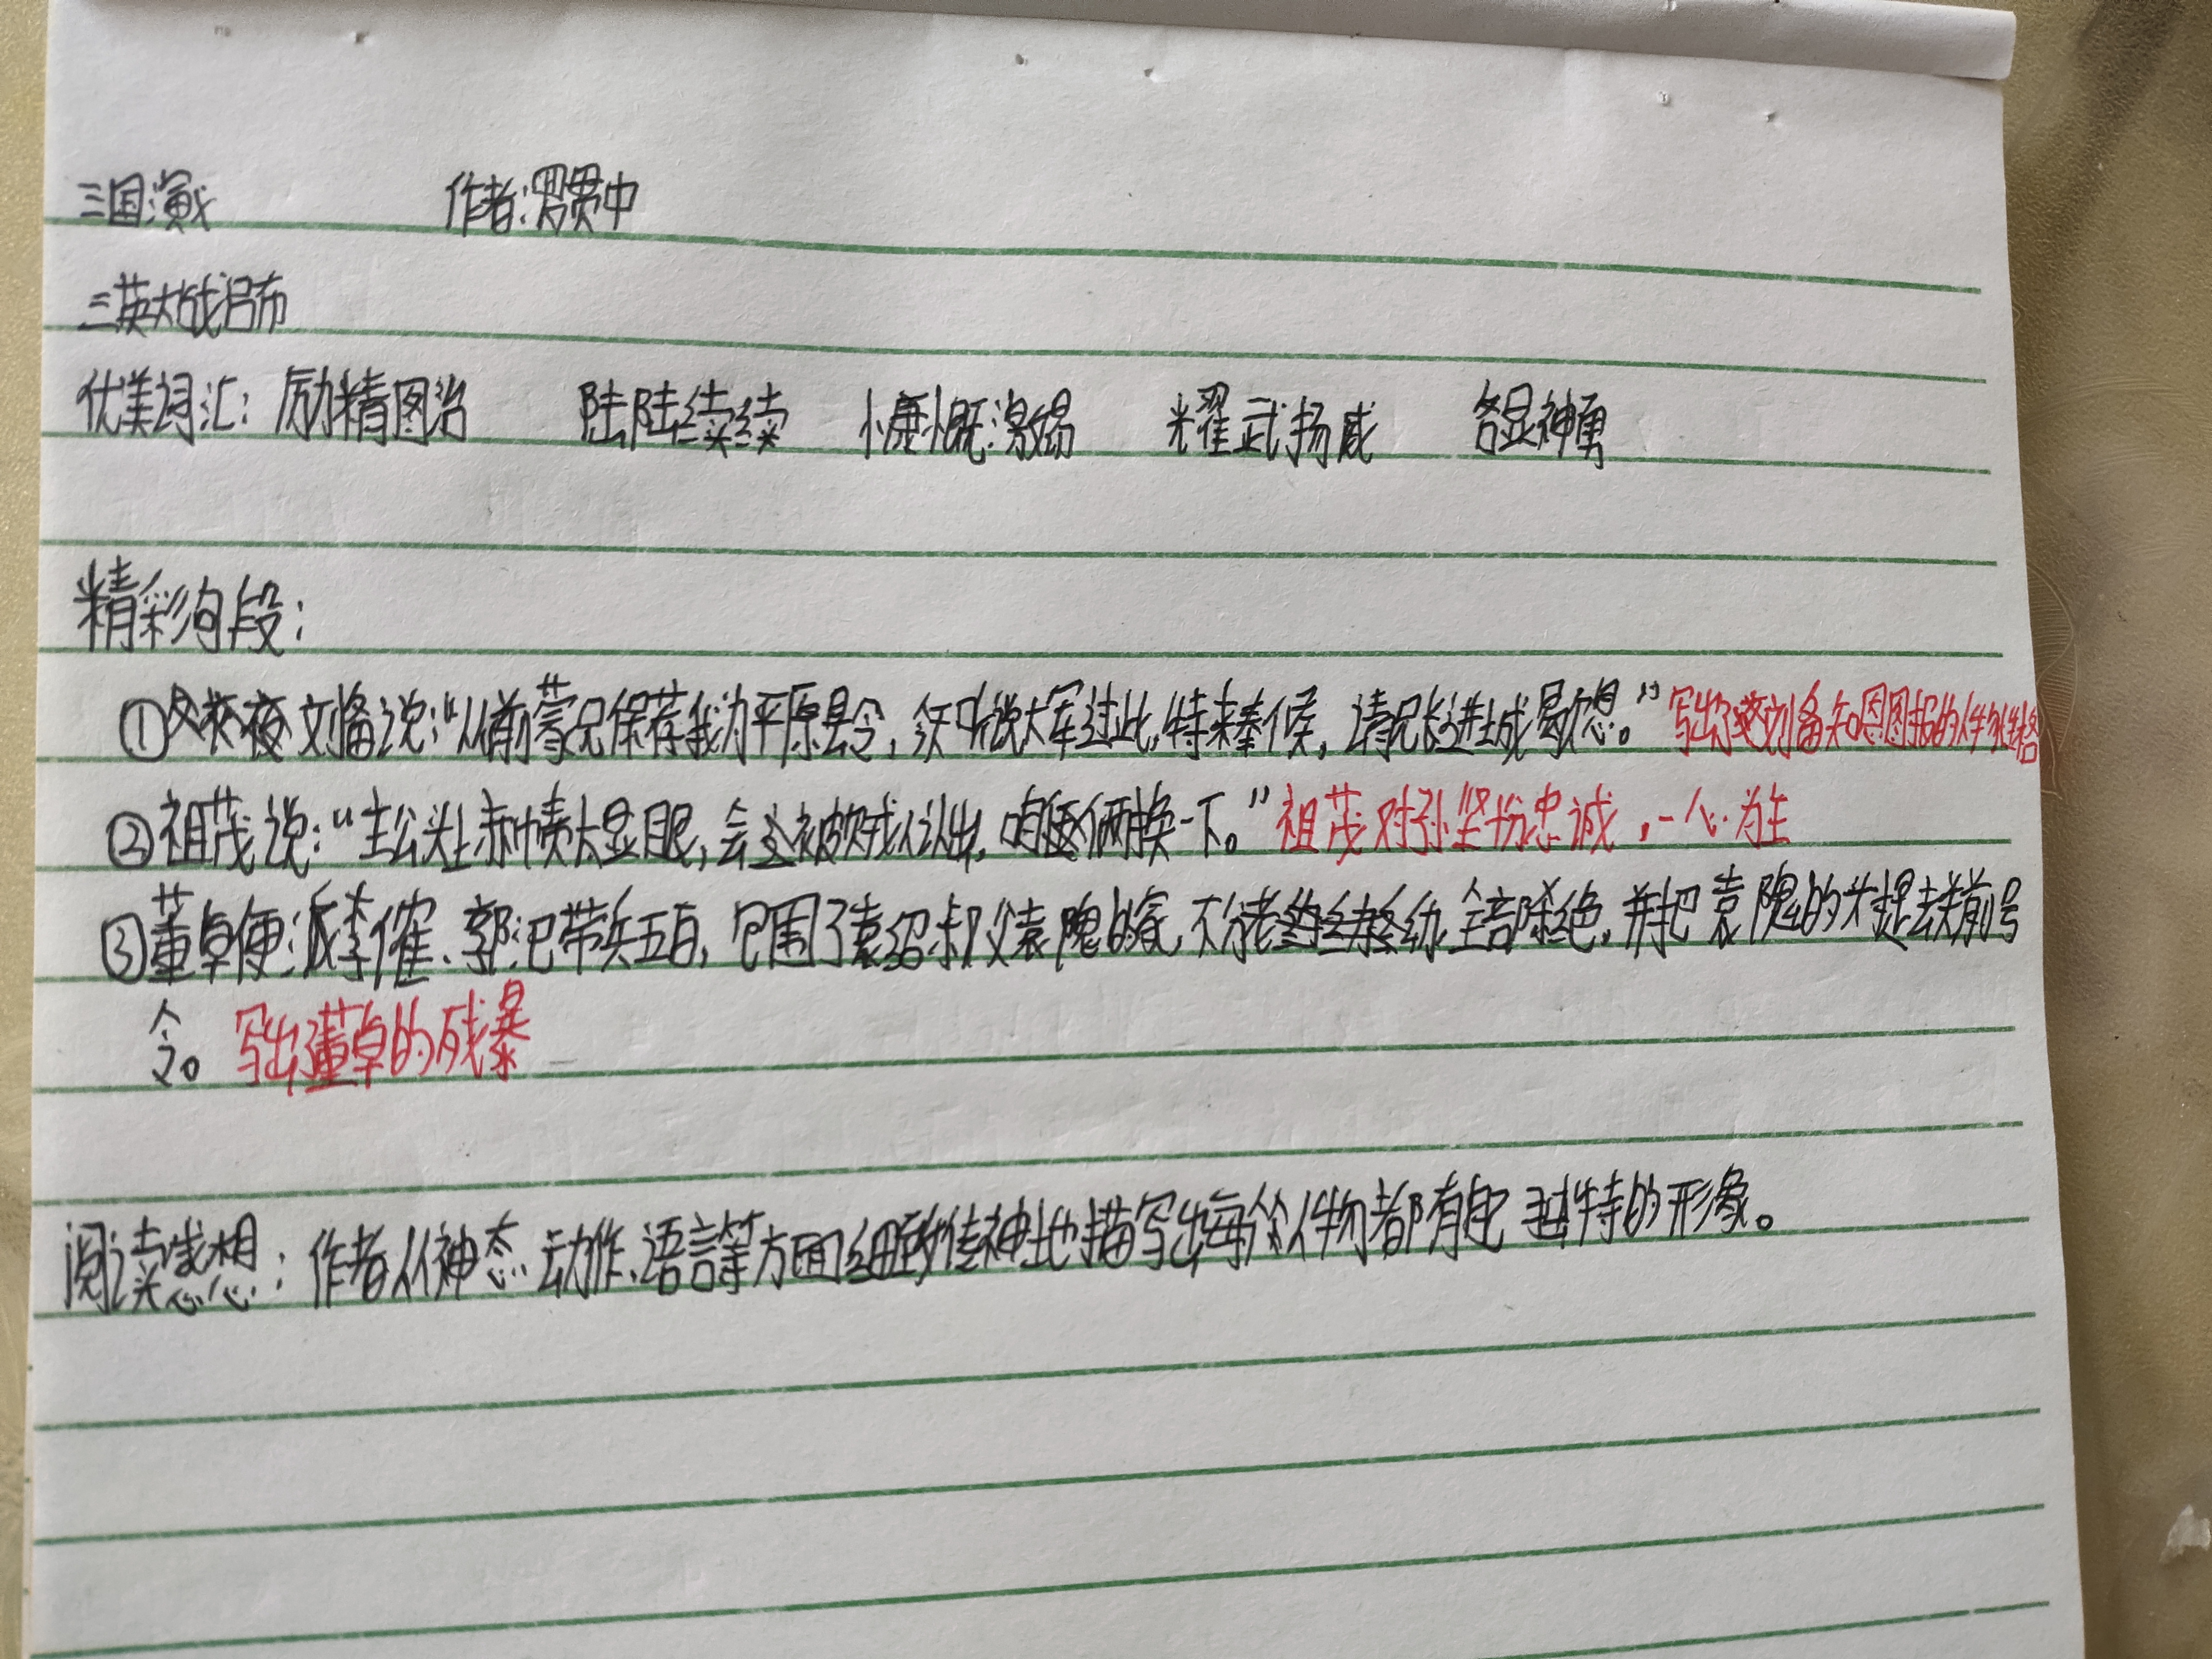 三国演义 作者:罗贯中
三英大战吕布
优美词汇: 励精图治 陆陆续续 慷慨激昂 耀武扬威 各显神勇
精彩句段:
①刘备说:“以前蒙兄保荐我为平原县令,今天听说大军过此,特来奉候,请兄长进城歇息。”写出了刘备知恩图报的人物性格
②祖茂说:“主公头上赤帻太显眼,会被贼人认出,咱俩换一下。”祖茂对孙坚十分忠诚,一心为主
③董卓便派李傕、郭汜带兵五百,包围了袁绍叔父袁隗的家,不分老幼,全部杀绝,并把袁隗的头提去关前号
令。写出董卓的残暴
阅读感想:作者从神态、动作、语言等方面细致传神地描写出每个人物都有自己独特的形象。